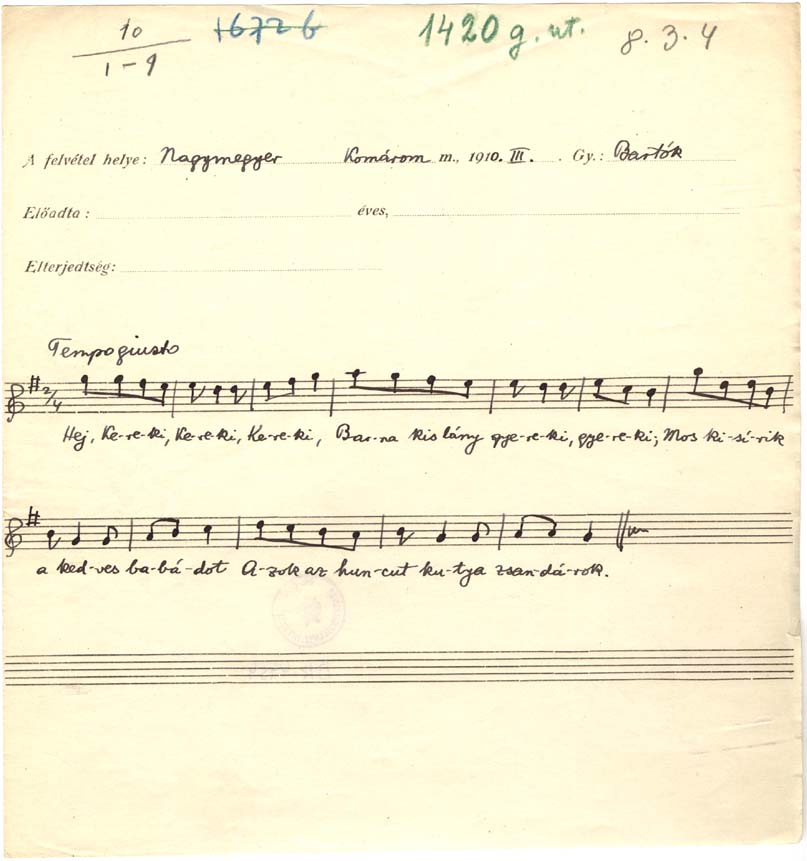 10 16726 1420 g. ut. 8. 3. 4
1-9
A felvétel helye: Nagymegyer Komárom m., 1910. III. Gy.: Bartók
Előadta: éves,
Elterjedtség:
Tempo giusto
2/4
Hej, Ke-re-ki, Ke-re-ki, Ke-re-ki, Bar-na kis lány gye-re-ki, gye-re-ki; Mos ki-sí-rik
a ked-ves ba-bá-dot A-zok az hun-cut ku-tya zsan-dá-rok.